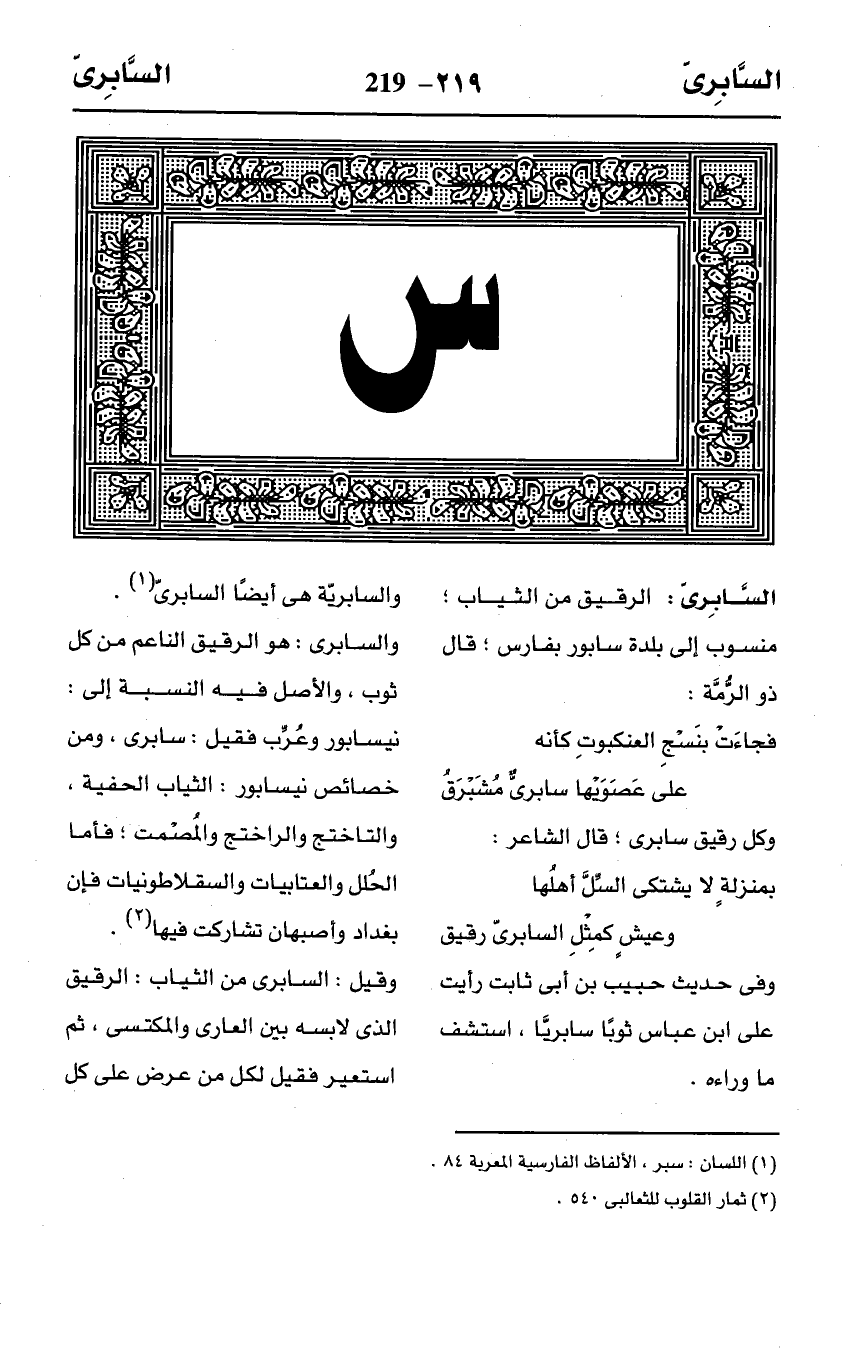 السَّابِرىّ
٢١٩- 219
السَّابِرىّ
س
السَّـابِرىّ : الرقـيق من الثـيـاب ؛
منسوب إلى بلدة سابور بفارس ؛ قال
ذو الرُّمَّة :
فجاءَتْ بنَسْجِ العنكبوتِ كأنه
على عَصَوَيْها سابرىٌّ مُشَبْرَقُ
وكل رقيق سابرى ؛ قال الشاعر :
بمنزلةٍ لا يشتكى السِّلَّ أهلُها
وعيشٍ كمِثْلِ السابرىّ رقيق
وفى حديث حبيب بن أبى ثابت رأيت
على ابن عباس ثوبًا سابريًّا ، استشف
ما وراءه .
والسابريّة هى أيضًا السابرىّ(١) .
والسـابرى : هو الرقيق الناعم من كل
ثوب ، والأصل فـيـه النسـبـة إلى :
نيسـابور وعُرِّب فقيل : سابرى ، ومن
خصائص نيسابور : الثياب الحفية ،
والتاختج والراختج والُمصْمت ؛ فأما
الحُلل والعتابيات والسقلاطونيات فإن
بغداد وأصبهان تشاركت فيها(٢) .
وقيل : السـابرى من الثيـاب : الرقيق
الذى لابسه بين العارى والمكتسى ، ثم
استعير فقيل لكل من عرض على كل
(١) اللسان : سبر ، الألفاظ الفارسية المعربة ٨٤ .
(٢) ثمار القلوب للثعالبى ٥٤٠ .